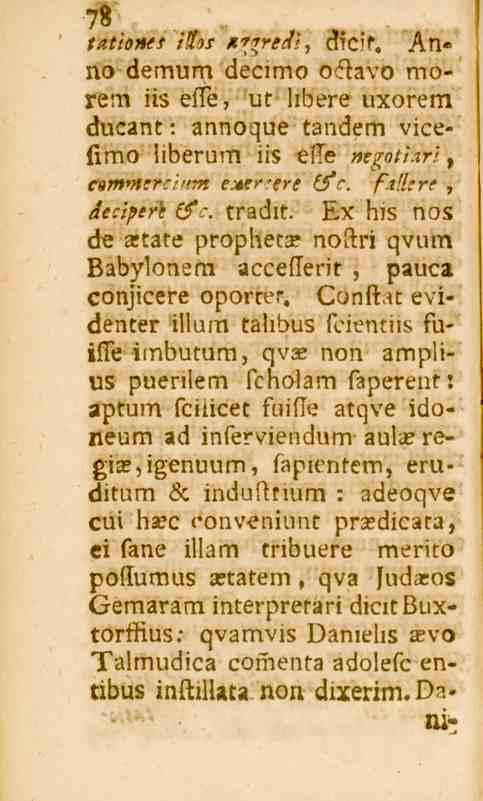 78
tationes illos aggredi, dicit. An-
no demum decimo octavo mo-
rem iis eſſe, ut libere uxorem
ducant: annoque tandem vice-
ſimo liberum iis eſſe negotiari,
commercium exercere &c. fallere,
decipere &c. tradit. Ex his nos
de ætate prophetæ noſtri qvum
Babylonem acceſſerit, pauca
conjicere oportet. Conſtat evi-
denter illum talibus ſcientiis fu-
iſſe imbutum, qvæ non ampli-
us puerilem ſcholam ſaperent:
aptum ſcilicet fuiſſe atqve ido-
neum ad inſerviendum aulæ re-
giæ, igenuum, ſapientem, eru-
ditum & induſtrium: adeoqve
cui hæc conveniunt prædicata,
ei ſane illam tribuere merito
poſſumus ætatem, qva Judæos
Gemaram interpretari dicit Bux-
torffius: qvamvis Danielis ævo
Talmudica com̃enta adoleſcen-
tibus inſtillata non dixerim. Da-
ni-